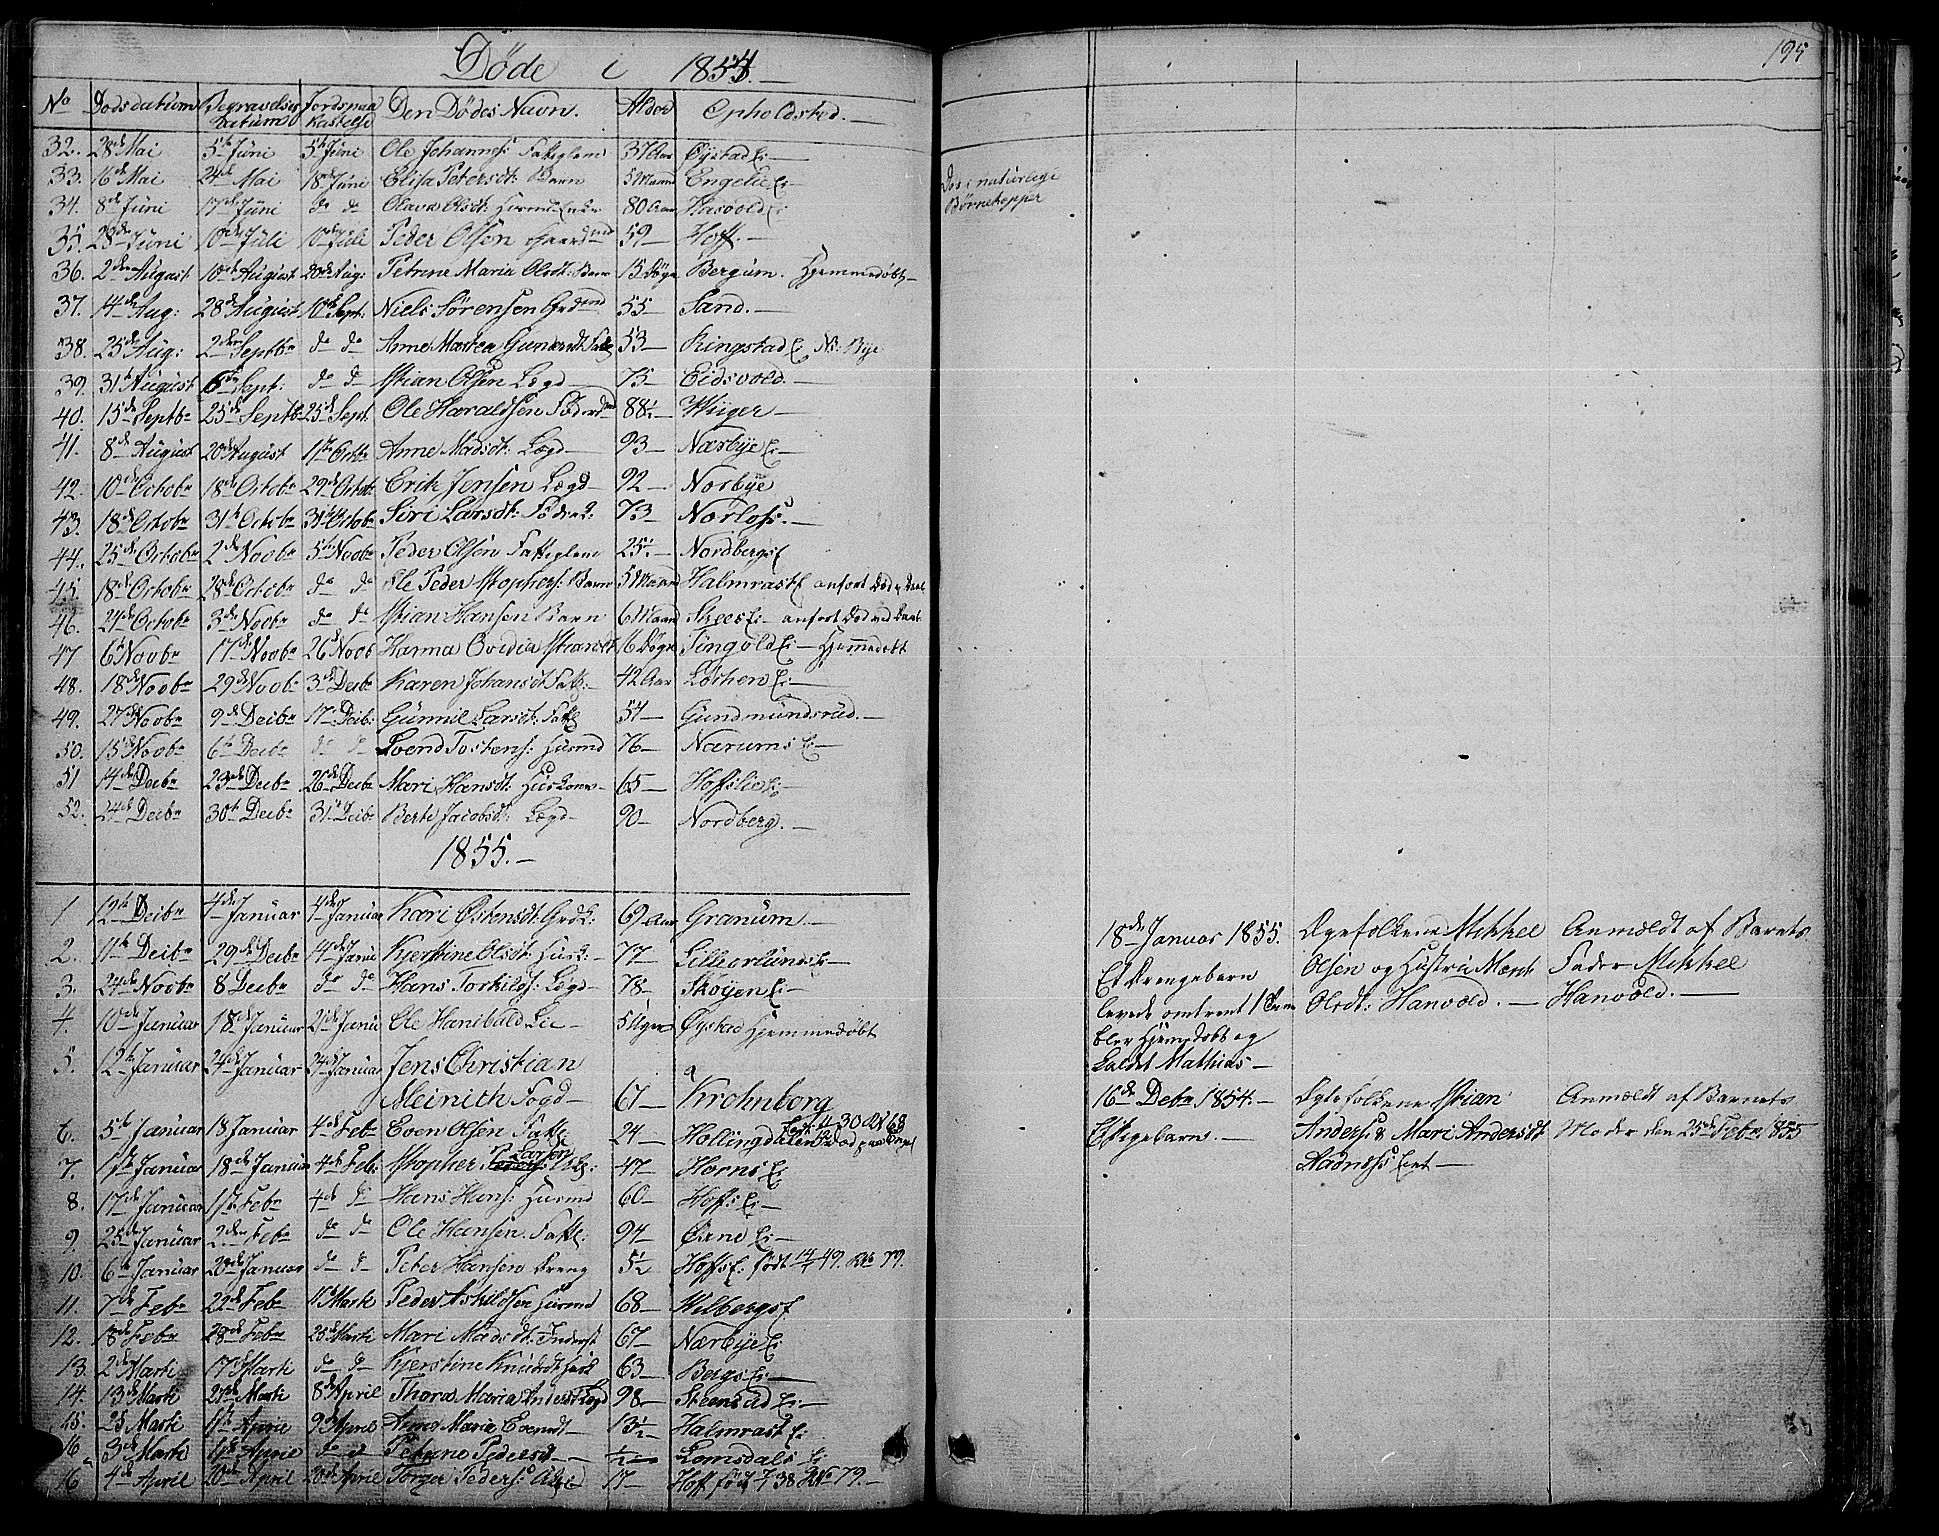 Døde i 1854.—
195
No Dødsdatum Begravelses datum Jordspaakastelse Den Dødes Navn. Alder Opholdsted.—
32. 28de Mai 5te Juni 5te Juni Ole Johannes: Fattiglem 37 Aar Øystad Ei—
33. 16de Mai 24de Mai 18de Juni Elisa Petersdt: Barn 5 Maand Engelie Ei—
Død i naturlige Børnekopper
34. 8de Juni 17de Juni do do Olava Olsdt: Husmd. Enke 80 Aar Hasvold Ei
35. 28de Juni 10de Juli 10de Juli Peder Olsen Gaardmd 59— Hoff.—
36. 2den August 10de August 20de Aug: Petrine Maria Olsdt: Barn 15 Døgn Bergum. Hjemmedøbt—
37. 14de Aug: 28de August 10de Sept: Niels Sörensen Grdmd 55— Sand.—
38. 25de Aug: 2den Septbr do do Anne Marthea Gundersdt Fattl 53— Ringstad Ei N: Bye
39. 31te August 6te Sept: do do Stian Olsen Lægd— 75— Eidsvold.—
40. 15de Septbr 25de Septbr 25de Sept. Ole Haraldsen Föderdmd 88½— Wüger—
41. 8de August 20de August 1ste Octbr Anne Madsdt: Lægd— 93— Nærbye Ei—
42. 10de Octobr 18de Octobr 29de Octobr Erik Jensen Lægd— 92— Norbye
43. 18de Octobr 31te Octobr 31te Octobr Siri Larsdt: Föder: 73— Norlofs.—
44. 25de Octobr 2de Novbr 5te Novbr Peder Olsen Fattiglem 25½— Nordbergs E
45. 18de Octobr 28de Octobr do do Ole Peder Stophers: Barn 5 Maand Halmrast E anført Død v Daab
46. 24de Octobr 3de Novbr do do Stian Hansen Barn 6 Maand Skees Ei— anført Død ved Daab
47 6te Novbr 17de Novbr 26de Novb Hanna Ovidia Stiansdt 16 Døgn Tingold Ei— Hjemmedøbt
48. 18de Novbr 29de Novbr 3de Decbr Karen Johansdt Fattl:— 42 Aar Löchen Ei—
49. 27de Novbr 9de Decbr 17de Decb: Gunnil Larsdt: Fattl 57— Gundmundsrud.—
50. 15de Novbr 6te Decbr do do Svend Tostens: Husmd 76— Nærums Ei—
51 14de Decbr 23de Decbr 26de Decbr Mari Hansdt: Huskone— 65— Hoffslie Ei—
52. 24de Decbr 30te Decbr 31te Decbr Berte Jacobsdt: Lægd— 90— Nordberg.—
1855.—
1 12te Decbr 4de Januar 4de Januar Kari Østensdt: Grdk: 69 Aar Granum—
2. 11te Decbr 29de Decbr 14de Janu Kjerstine Olsdt: Husk:— 77— Lilleorluns Ei—
3. 24de Novbr 8 Decbr do do Hans Torkilds: Lægd— 78— Skøyen Ei—
4. 10de Januar 18de Januar 21de Janu Ole Hanibald Lie— 5 Uger Øystad Hjemmedøbt
5. 12te Januar 24de Januar 24de Januar Jens Christian
Meinith Fogd— 67— Krohnborg
6. 5te Januar 18 Januar 4de Feb Even Olsen Fattl 24— Hollingdalen
7. 1ste Januar 18de Januar 4de Feb: Stopher Larsen 47— Horns Ei
8. 17de Januar 1ste Febr 4de do Hans Hans: Husmd 60— Hoffs Ei—
9. 25de Januar 2den Febr do do Ole Hansen Fattl: 94— Øxne Ei—
10. 6te Januar 20de Januar do do Peter Hansen Dreng 5½ Hoffs E: født 49. No 79.
11. 7de Febr 22de Febr 11te Marti Peder Askildsen Husmd 68— Wilbergs E
12. 18de Febr 28de Febr 25de Marti Mari Madsdt: Inderst 67— Nærbye Ei
13. 2den Marti 17de Marti do do Kjerstine Knudsdt Husk 63— Bergs Ei—
14. 13de Marti 27de Marti 8de April Thora Maria Andersdt Lægd 98— Steensud Ei—
15. 25 Marti 11te Aprie 9de April Anne Maria Evensdt— 13½ Halmrast Ei
16 3de Marti Aprie do do Petrine Pedersdt— ½— Lomsdals Ei
16 4de April 20de April 20de April Torger Peders: 17— Hoff født 38 No 79.—
18de Januar 1855. Et Drengebarn levede omtrent 1 blev Hjemdøbt og kaldet Mathias—
Ægtefolkene Mikkel Olsen og Hustru Marthe Olsdt: Hanvold.—
Anmældt af Barnets Fader Mikkel Hanvold.—
16de Decbr 1854.— Et Pigebarn.—
Ægtefolkene Stian Anders: & Mari Andersdt Aadnæss Eiet—
Anmeldt af Barnets Moder den 25de Febr 1855